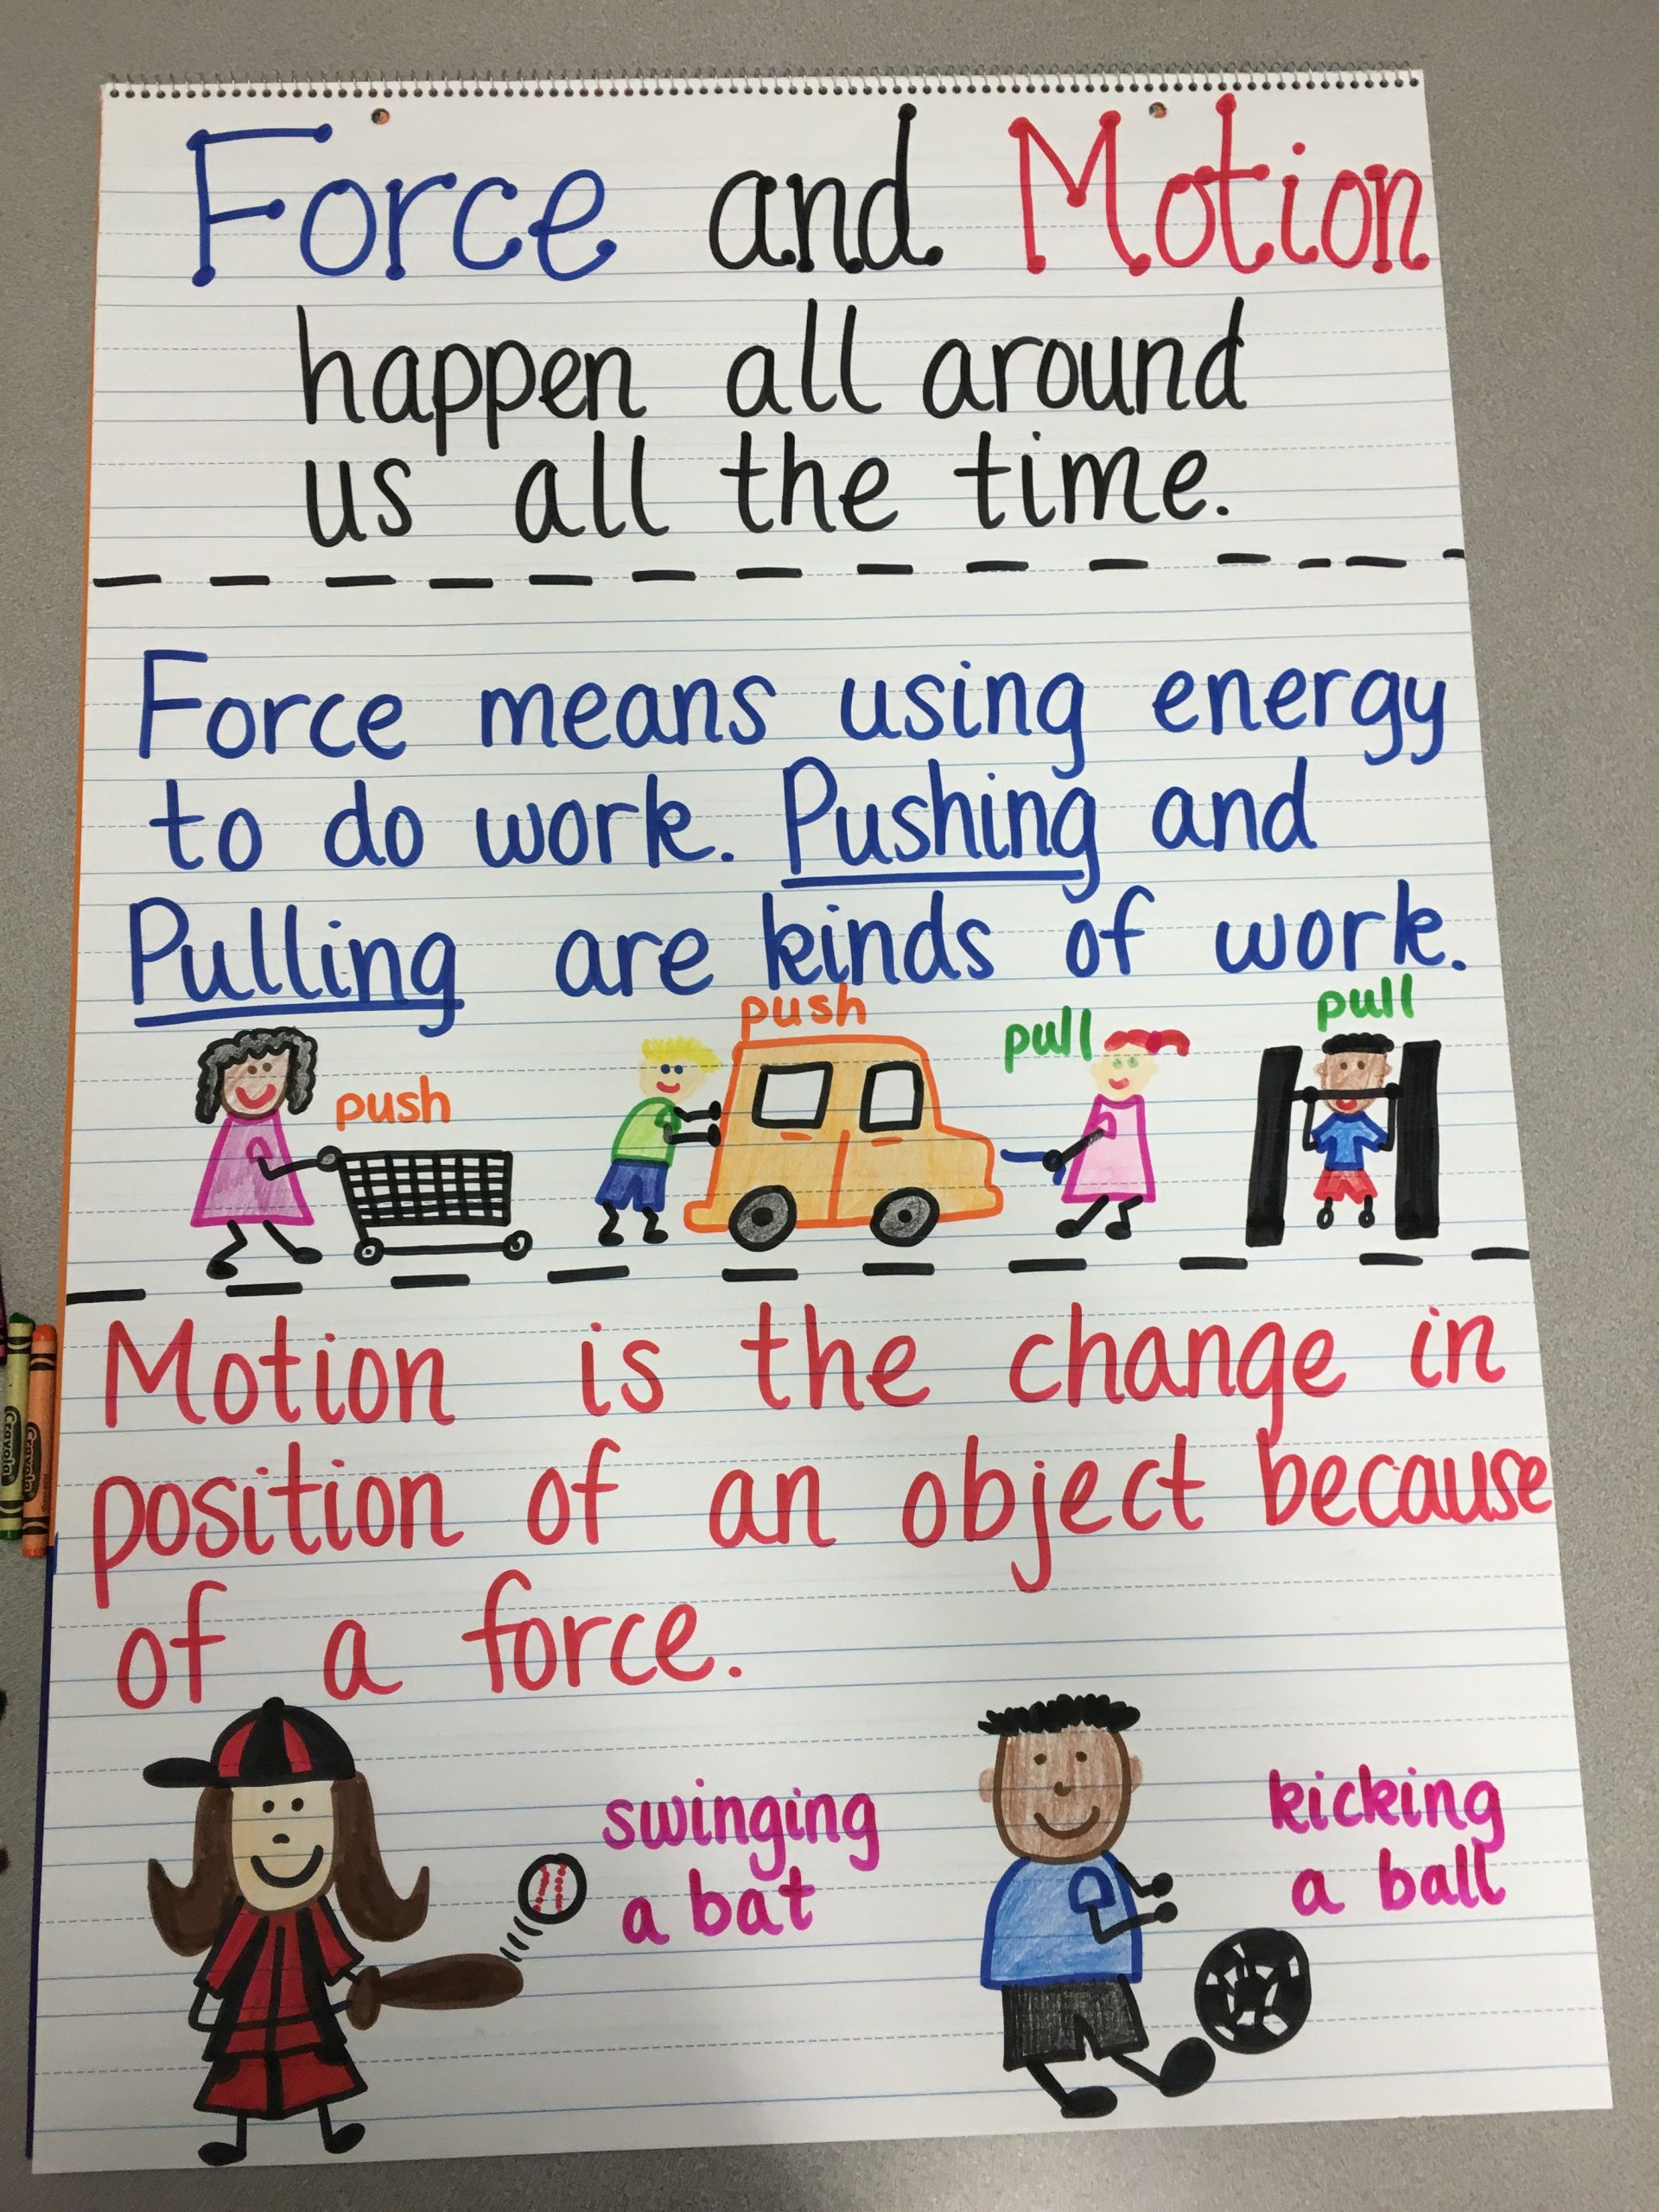 Force and Motion
happen all around
us all the time.
Force means using energy
to do work. Pushing and
Pulling are kinds of work.
push
push
pull
pull
Motion is the change in
position of an object because
of a force.
swinging
a bat
kicking
a ball
Crayola
Crayola